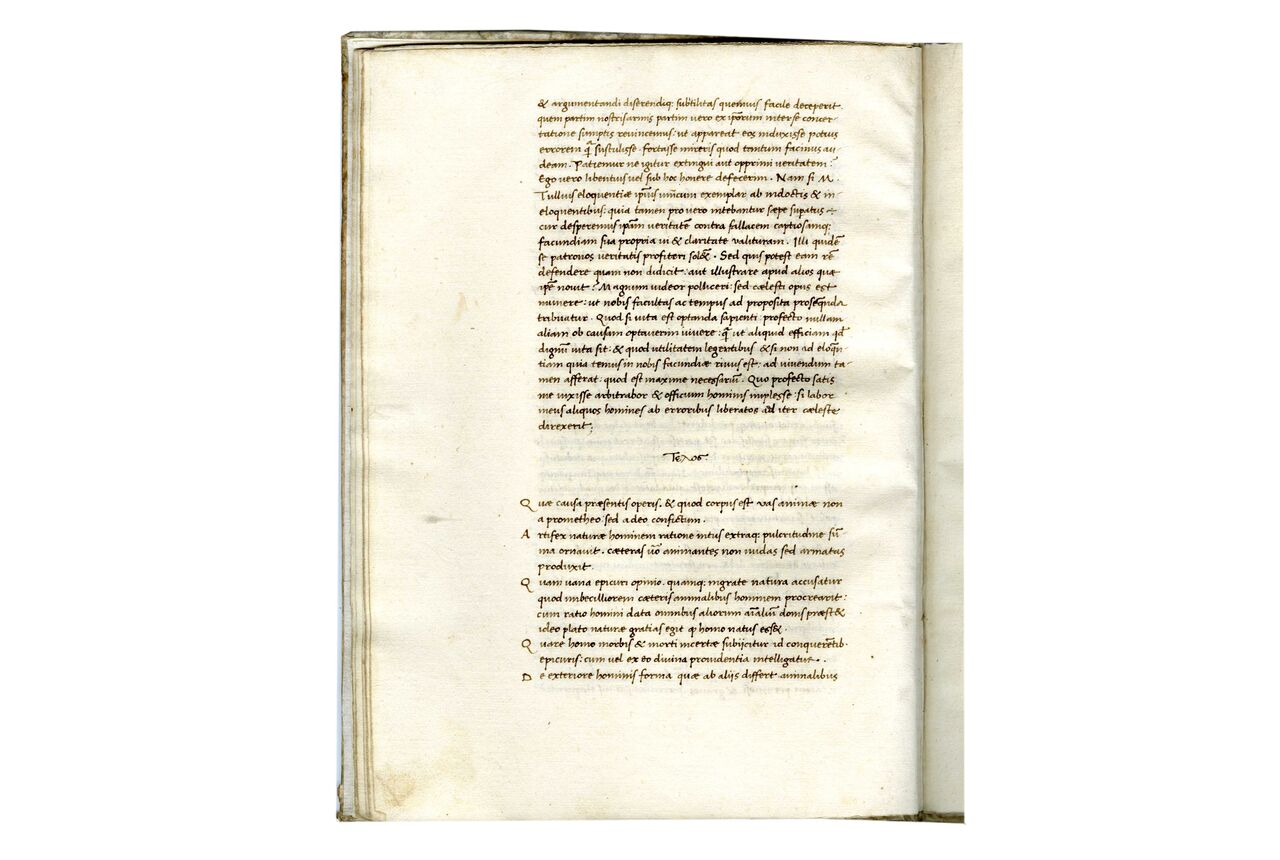 & argumentandi diserendiq; subtilitas quemuis facile deceperit.
quem partim nostris armis partim vero ex ipsorum inter se concer-
tatione sumptis reuincemus: ut appareat eos induxisse potius
errorem q̄ sustulisse. fortasse mireris quod tantum facinus au-
deam. Patiemur ne igitur extingui aut opprimi veritatem?
Ego vero libentius vel sub hoc honere defecerim. Nam si M.
Tullius eloquentiæ ip̄ius unicum exemplar ab indoctis & in-
eloquentibus: quia tamen pro vero nitebantur sæpe supatus ÷
cur desperemus ip̄am veritatē contra fallacem captiosamq;
facundiam sua propria ui & claritate valituram. Illi quidē
se patronos veritatis profiteri sol&. Sed quis potest eam rē
defendere quam non didicit: aut illustrare apud alios quæ
ip̄e novit? Magnum uideor polliceri: sed cælesti opus est
munere: ut nobis facultas ac tempus ad proposita proseq̄nda
tribuatur. Quod si vita est optanda sapienti: profecto nullam
aliam ob causam optaverim vivere: q̄ ut aliquid efficiam qd̄
dignū vita sit: & quod utilitatem legentibus & si non ad eloq̄n
tiam quia tenuis in nobis facundiæ rivus est: ad vivendum ta-
men afferat: quod est maxime necessariū. Quo profecto satis
me vixisse arbitrabor & officium hominis implesse: si labor
meus aliquos homines ab erroribus liberatos ad iter cæleste
direxerit;
Τελος.
Quæ causa præsentis operis. & quod corpus est vas animæ non
a prometheo sed a deo confictum.
Artifex naturæ hominem ratione intus extraq; pulcritudine sū
ma ornauit. cæteras ūo animantes non nudas sed armatas
produxit.
Quam uana epicuri opinio. quamq; ingrate natura accusatur
quod imbecilliorem cæteris animalibus hominem procrearit:
cum ratio homini data omnibus aliorum aīaliū donis præst&
ideo plato naturæ gratias egit q homo natus ess&.
Quare homo morbis & morti incertæ subijcitur id conquerētib.
epicuris: cum vel ex eo divina providentia intelligatur.
De exteriore hominis forma quæ ab aliis differt animalibus